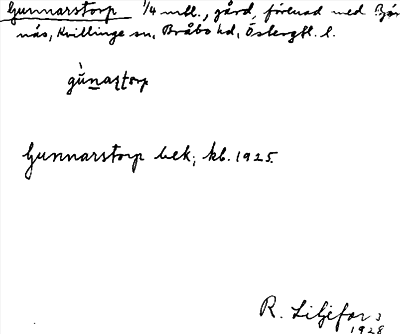 Gunnarstorp 1/4 mtl., gård, förenad med Bjä-
näs, Kvillinge sn, Bråbo hd, Östergtl. l.
gùnaṣtorp
Gunnarstorp bek; kb. 1925.
R. Liljefors
1928